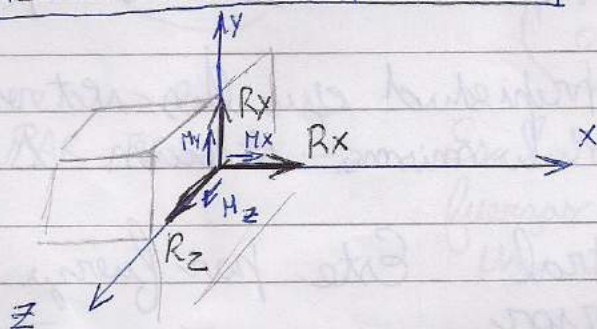 Y
Ry
My Mx Rx X
Mz
Rz
Z